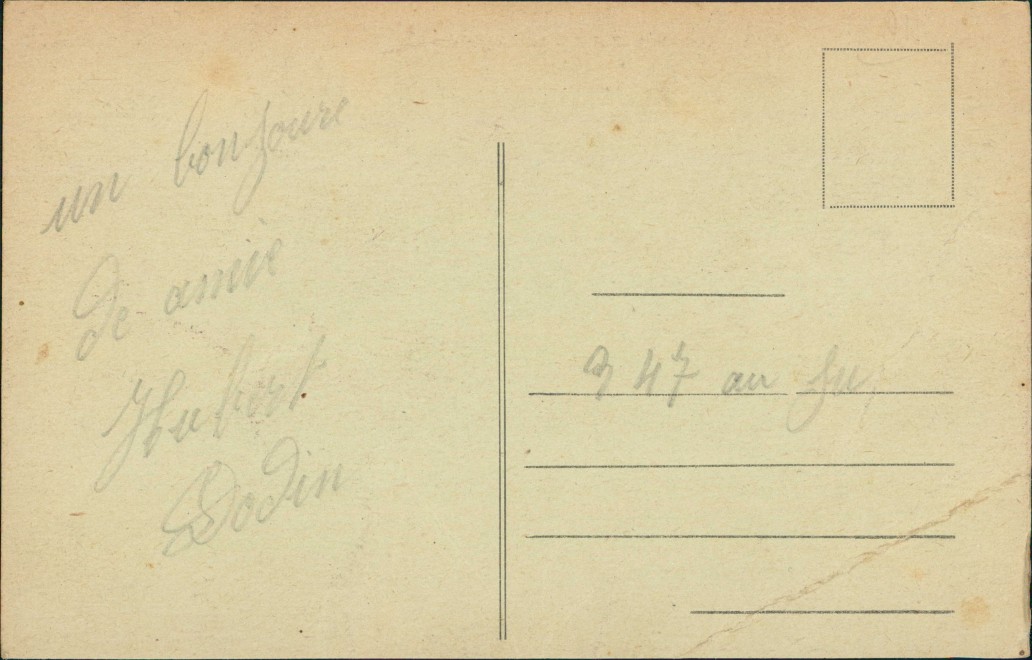 un bonjoure
de amie
Hubert
Dodin
347 au ju,